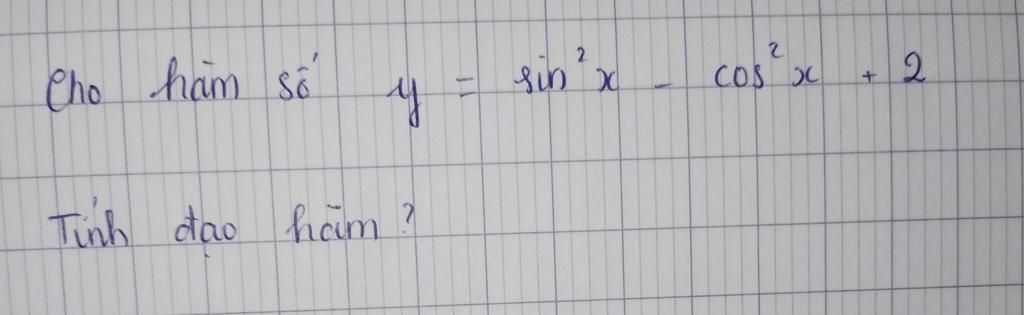 Cho hàm số y = sin²x - cos²x + 2
Tính đạo hàm?